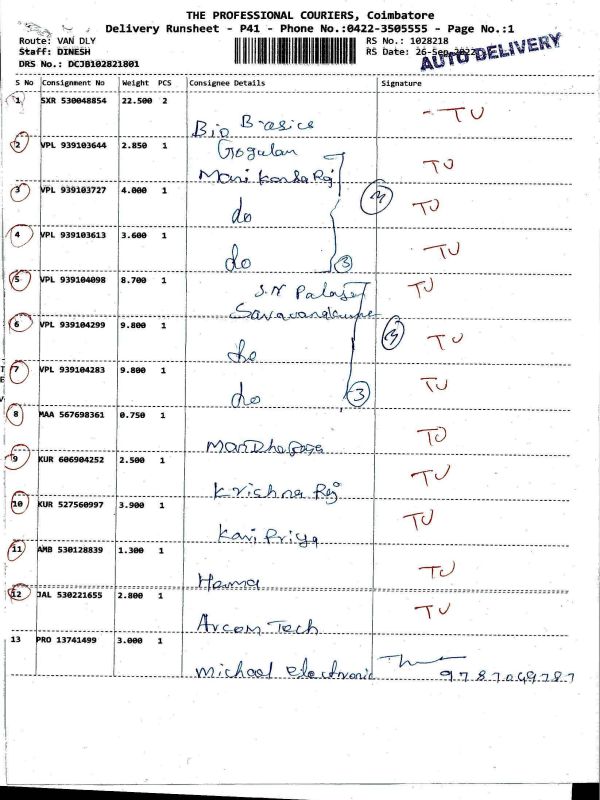 THE PROFESSIONAL COURIERS, Coimbatore
Delivery Runsheet - P41 - Phone No.:0422-3505555 - Page No.:1
Route: VAN DLY RS No.: 1028218
Staff: DINESH RS Date: 26-Sep-2022
AUTO DELIVERY
DRS No.: DCJB102821801
S No Consignment No Weight PCS Consignee Details Signature
1 SXR 530048854 22.500 2 Bio Basics TU
2 VPL 939103644 2.850 1 Gogulan TU
3 VPL 939103727 4.000 1 do TU
4 VPL 939103613 3.600 1 do 3 TU
5 VPL 939104098 8.700 1 S.N TU
6 VPL 939104299 9.800 1 do TU
7 VPL 939104283 9.800 1 do 3 TU
8 MAA 567698361 0.750 1 TU
9 KUR 606904252 2.500 1 Krishna Raj TU
10 KUR 527560997 3.900 1 Kavi Priya TU
11 AMB 530128839 1.300 1 Hema TU
12 JAL 530221655 2.800 1 Arcom Tech TU
13 PRO 13741499 3.000 1 Michael electronic